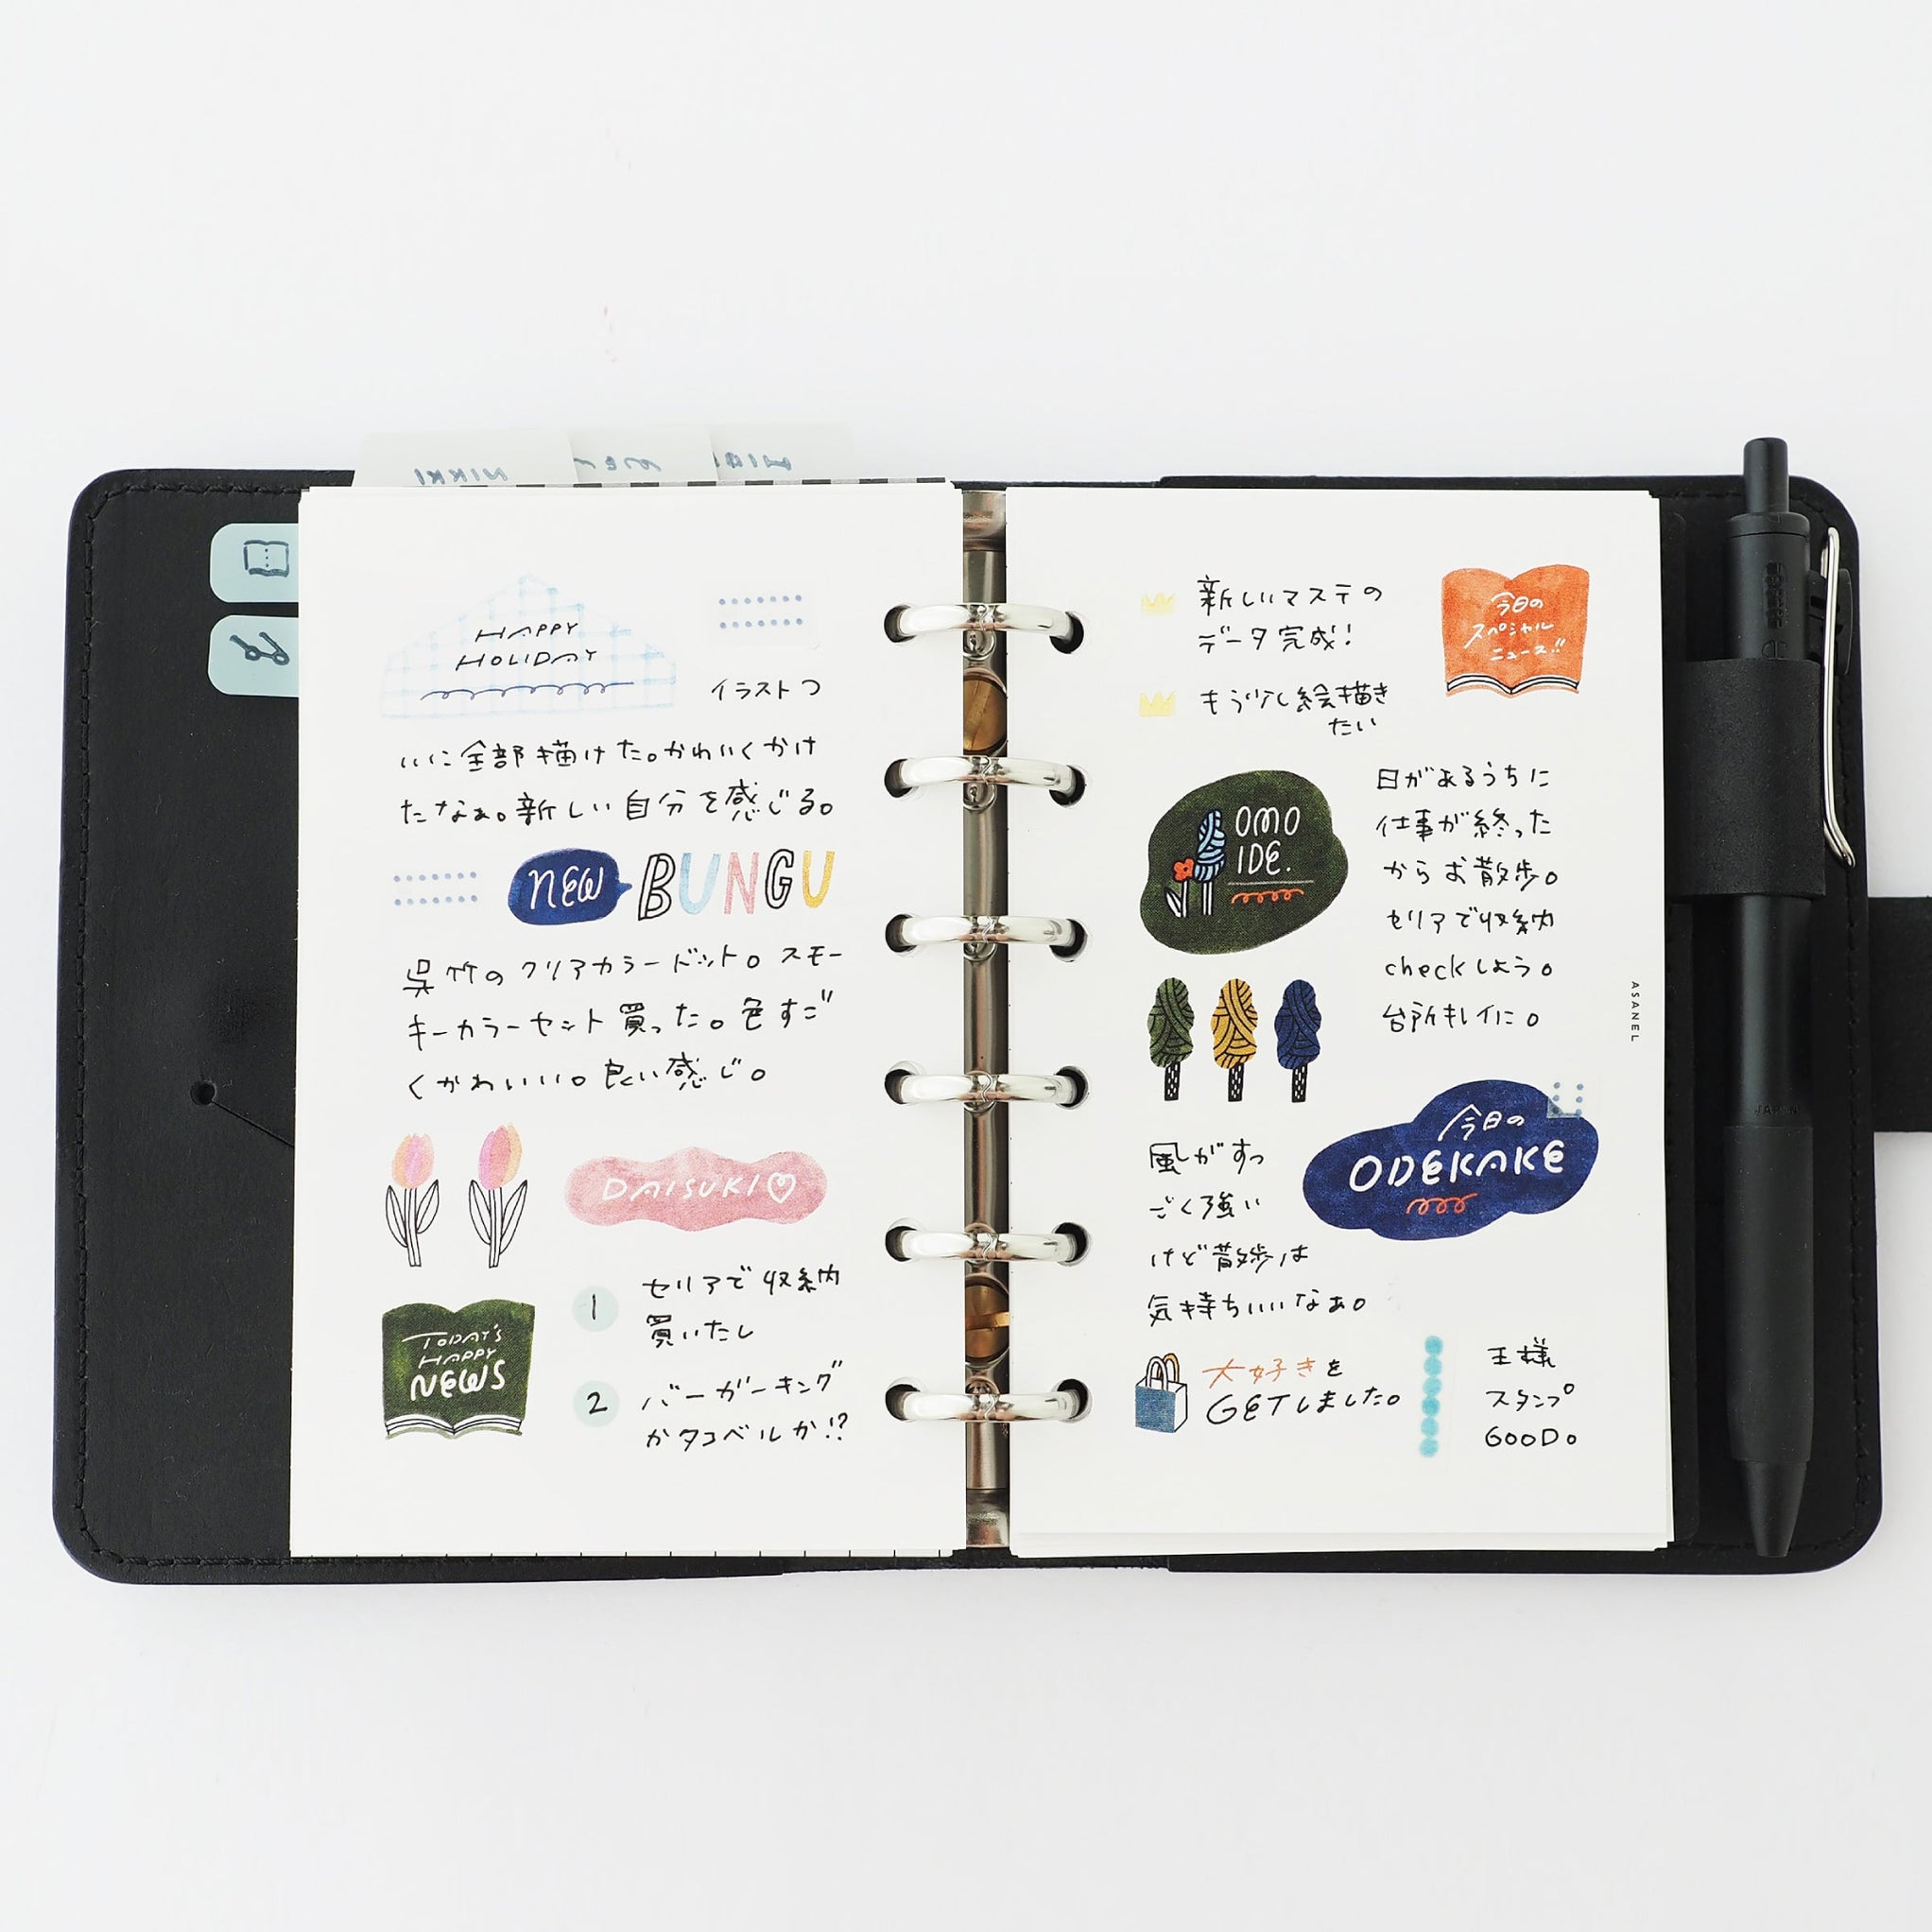 NIKKI
HAPPY
HOLIDAY
イラストつ
いに全部描けた。かわいくかけ
たなぁ。新しい自分を感じる。
NEW BUNGU
呉竹のクリアカラードット。スモー
キーカラーセット買った。色すご
くかわいい。良い感じ。
DAISUKI♡
TODAY'S
HAPPY
NEWS
1 セリアで収納
買いたし
2 バーガーキング
かタコベルか!?
新しいマステの
データ完成!
もう少し絵描き
たい
今日の
スペシャル
ニュース!!
OMO
IDE.
日があるうちに
仕事が終った
からお散歩。
セリアで収納
checkしよう。
台所キレイに。
ASANEL
今日の
ODEKAKE
風がすっ
ごく強い
けど散歩は
気持ちいいなぁ。
大好きを
GETしました。
王様
スタンプ
GOOD。
JAPAN